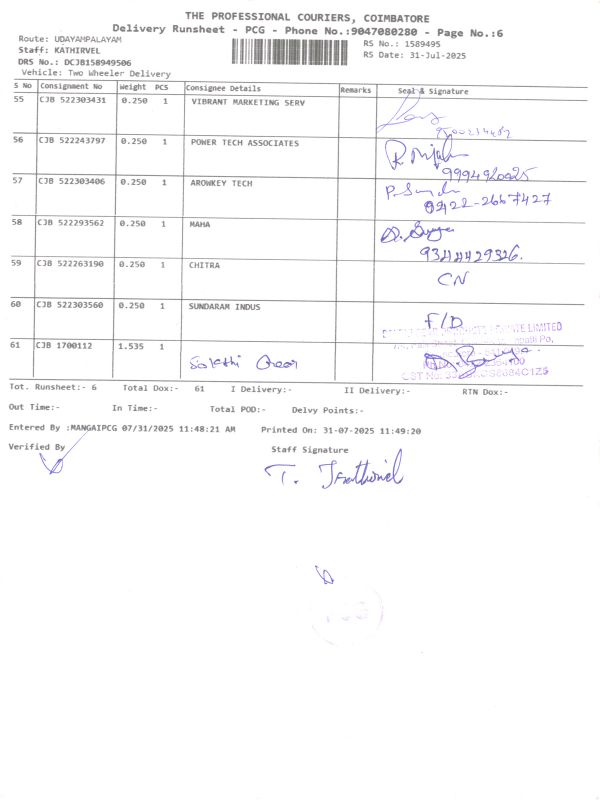 THE PROFESSIONAL COURIERS, COIMBATORE
Delivery Runsheet - PCG - Phone No.:9047080280 - Page No.:6
Route: UDAYAMPALAYAM
RS No.: 1589495
Staff: KATHIRVEL
RS Date: 31-Jul-2025
DRS No.: DCJB158949506
Vehicle: Two Wheeler Delivery
S No Consignment No Weight PCS Consignee Details Remarks Seal & Signature
55 CJB 522303431 0.250 1 VIBRANT MARKETING SERV
56 CJB 522243797 0.250 1 POWER TECH ASSOCIATES
9994920025
57 CJB 522303406 0.250 1 AROWKEY TECH
0422-2667427
58 CJB 522293562 0.250 1 MAHA
9344429326.
59 CJB 522263190 0.250 1 CHITRA CN
60 CJB 522303560 0.250 1 SUNDARAM INDUS F/D
61 CJB 1700112 1.535 1 Sakthi Gear
Tot. Runsheet:- 6 Total Dox:- 61 I Delivery:- II Delivery:- RTN Dox:-
Out Time:- In Time:- Total POD:- Delvy Points:-
Entered By :MANGAIPCG 07/31/2025 11:48:21 AM Printed On: 31-07-2025 11:49:20
Verified By Staff Signature